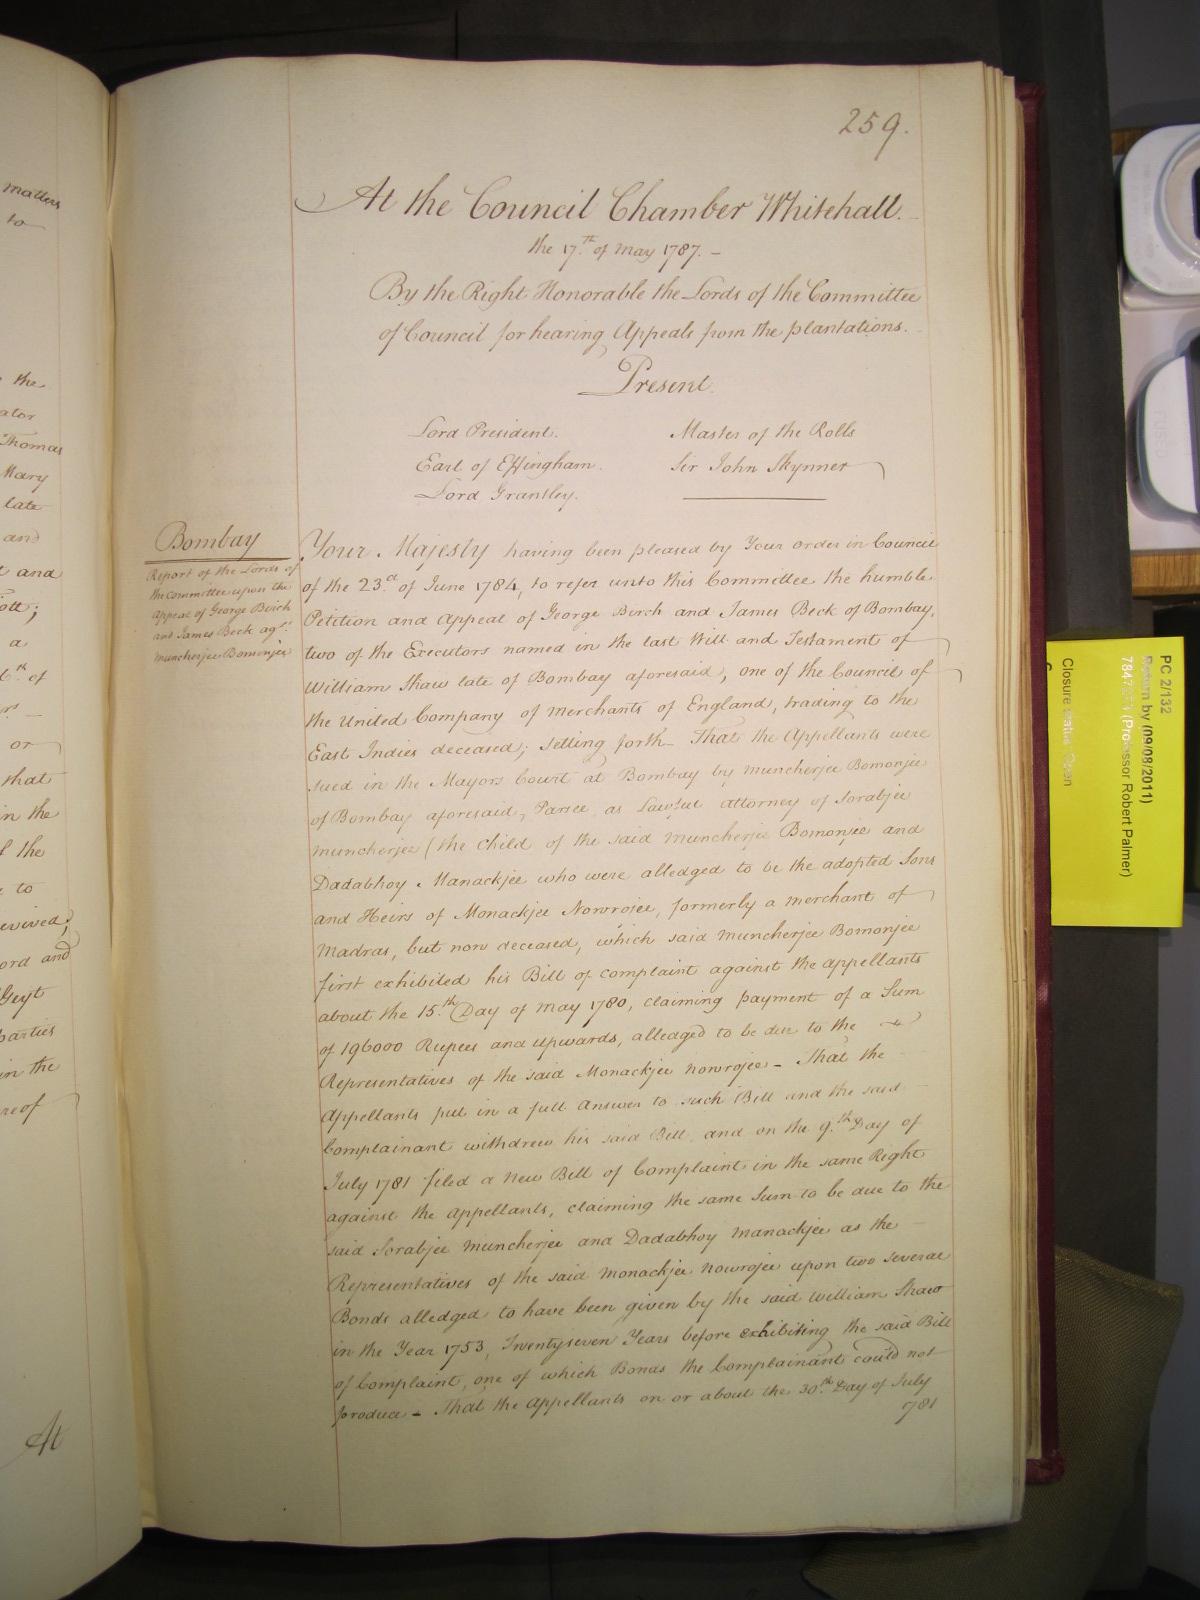 matters
to
the
ator
Thomas
Mary
late
and
t and
ott;
a
6th of
or
that
in the
f the
to
eceived;
ord and
Geyt
parties
in the
reof
At
259.
At the Council Chamber Whitehall.
the 17th of May 1787. -
By the Right Honorable the Lords of the Committee
of Council for hearing Appeals from the plantations.
Present
Lord President. Master of the Rolls
Earl of Effingham. Sir John Skynner
Lord Grantley.
Bombay
Report of the Lords of
the Committee upon the
Appeal of George Birch
and James Beck agst
Muncherjee Bomonjee
Your Majesty having been pleased by Your order in Council
of the 23d of June 1784, to refer unto this Committee the humble
Petition and Appeal of George Birch and James Beck of Bombay,
two of the Executors named in the last Will and Testament of
William Shaw late of Bombay aforesaid, one of the Council of
the United Company of Merchants of England, trading to the
East Indies deceased; setting forth - That the Appellants were
sued in the Mayors Court at Bombay by Muncherjee Bomonjee
of Bombay aforesaid, Parsee, as Lawful attorney of Sorabjee
Muncherjee (the child of the said Muncherjee Bomonjee and
Dadabhoy Manackjee who were alledged to be the adopted Sons
and Heirs of Monackjee Nowrojee, formerly a merchant of
Madras, but now deceased, which said Muncherjee Bomonjee
first exhibited his Bill of complaint against the appellants
about the 15th Day of May 1780, claiming payment of a Sum
of 196000 Rupees and upwards, alledged to be due to the
Representatives of the said Monackjee Nowrojee - That the
Appellants put in a full answer to such Bill and the said
Complainant withdrew his said Bill, and on the 9th Day of
July 1781 filed a new Bill of Complaint in the same Right
against the appellants, claiming the same Sum to be due to the
said Sorabjee Muncherjee and Dadabhoy Manackjee as the
Representatives of the said Monackjee Nowrojee upon two several
Bonds alledged to have been given by the said William Shaw
in the Year 1753, Twentyseven Years before exhibiting the said Bill
of Complaint, one of which Bonds the Complainant could not
produce - That the Appellants on or about the 30th Day of July
1781
PC 2/132
Return by (09/08/2011)
(Professor Robert Palmer)
Closure status: Open